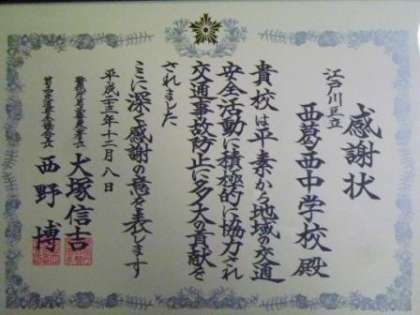 感謝状
江戸川区立
西葛西中学校 殿
貴校は平素から地域の交通
安全活動に積極的に協力され
交通事故防止に多大の貢献を
されました
ここに深く感謝の意を表します
平成二十三年十二月八日
大塚信吉
西野博